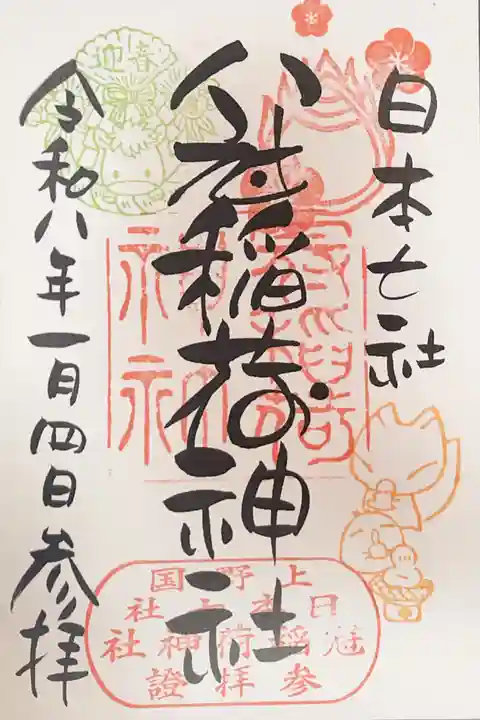 日本七社
冠稲荷神社
令和八年一月四日参拝
迎春
上野国
日本七社
冠稲荷神社
参拝證